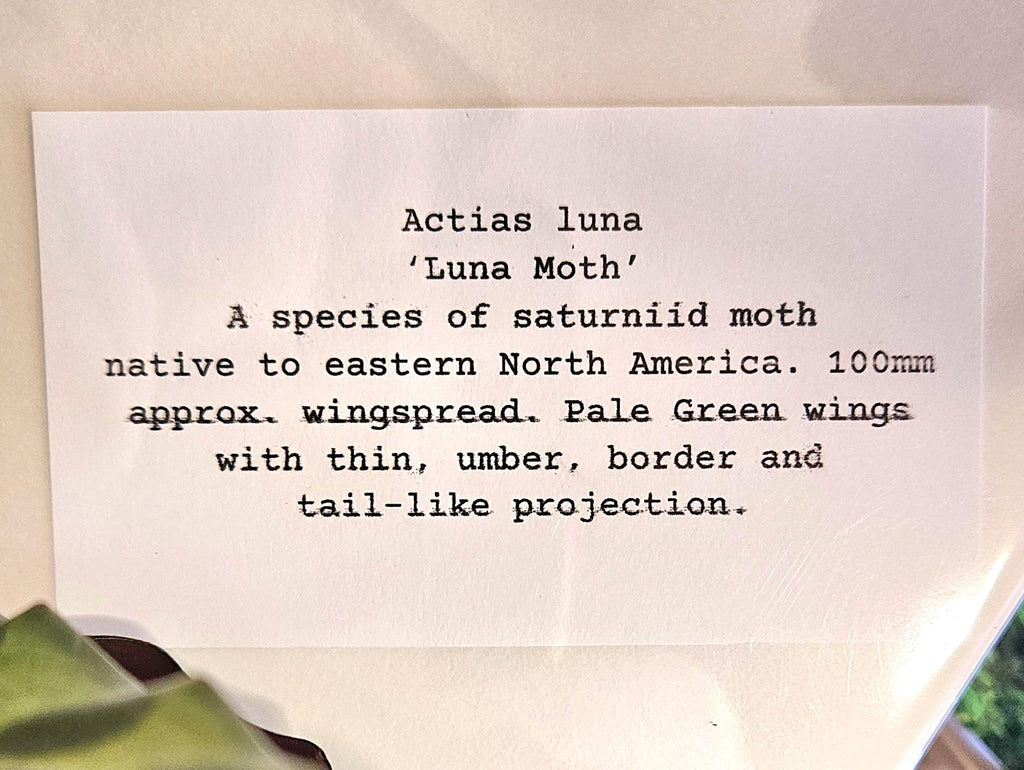 Actias luna
‘Luna Moth’
A species of saturniid moth
native to eastern North America. 100mm
approx. wingspread. Pale Green wings
with thin, umber, border and
tail-like projection.